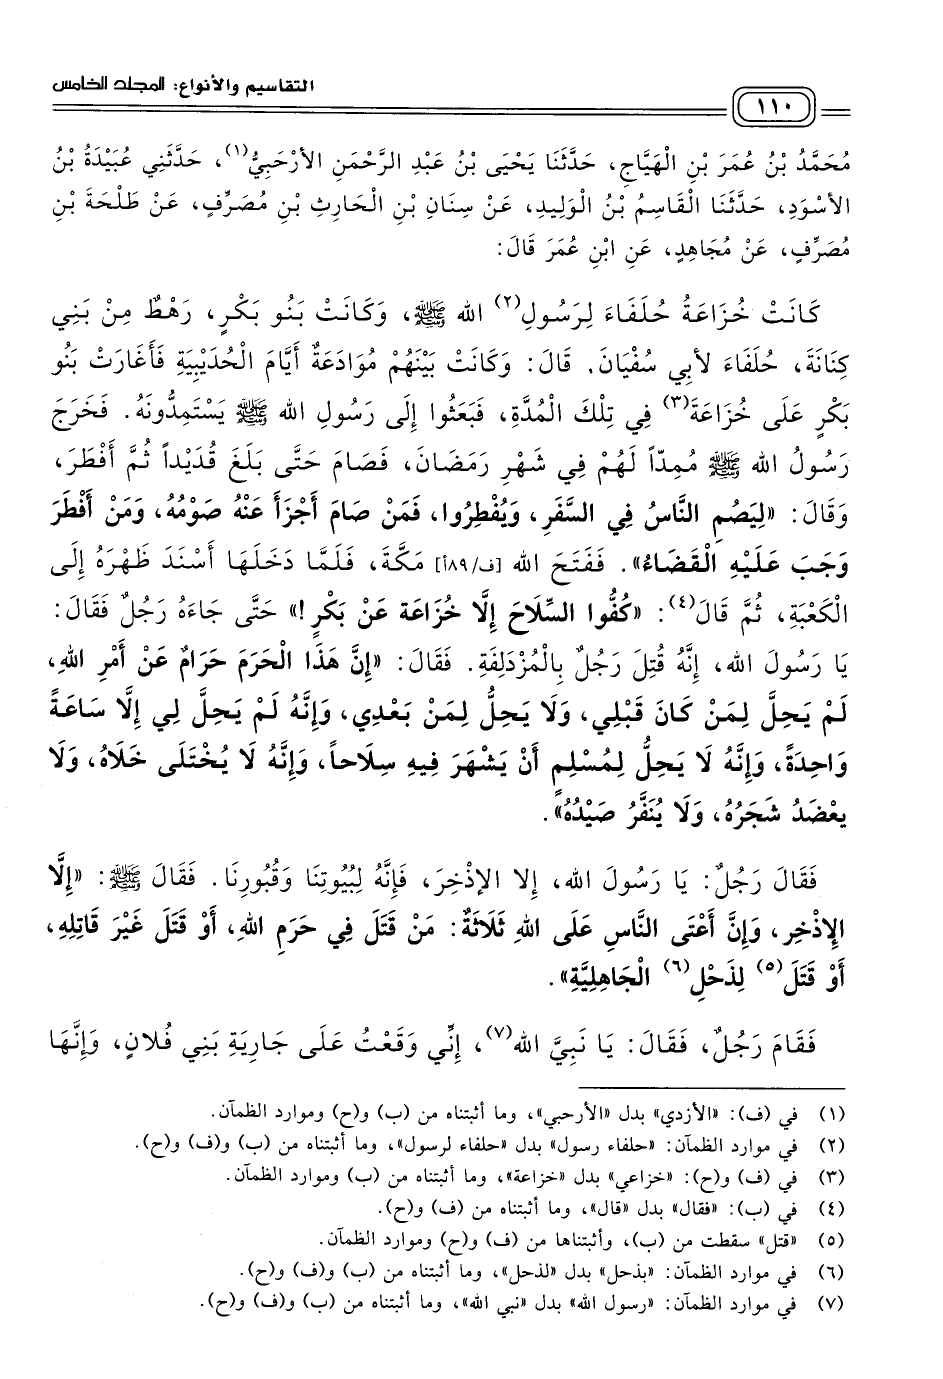 التقاسيم والأنواع: المجلد الخامس
١١٠
مُحَمَّدُ بْنُ عُمَرَ بْنِ الْهَيَّاجِ، حَدَّثَنَا يَحْيَى بْنُ عَبْدِ الرَّحْمَنِ الأَرْحَبِيُّ(١)، حَدَّثَنِي عُبَيْدَةُ بْنُ
الأَسْوَدِ، حَدَّثَنَا الْقَاسِمُ بْنُ الْوَلِيدِ، عَنْ سِنَانِ بْنِ الْحَارِثِ بْنِ مُصَرِّفٍ، عَنْ طَلْحَةَ بْنِ
مُصَرِّفٍ، عَنْ مُجَاهِدٍ، عَنِ ابْنِ عُمَرَ قَالَ:
كَانَتْ خُزَاعَةُ حُلَفَاءَ لِرَسُولِ(٢) الله ﷺ، وَكَانَتْ بَنُو بَكْرٍ، رَهْطٌ مِنْ بَنِي
كِنَانَةَ، حُلَفَاءَ لأَبِي سُفْيَانَ. قَالَ: وَكَانَتْ بَيْنَهُمْ مُوَادَعَةٌ أَيَّامَ الْحُدَيْبِيَةِ فَأَغَارَتْ بَنُو
بَكْرٍ عَلَى خُزَاعَةَ(٣) فِي تِلْكَ الْمُدَّةِ، فَبَعَثُوا إِلَى رَسُولِ الله ﷺ يَسْتَمِدُّونَهُ. فَخَرَجَ
رَسُولُ الله ﷺ مُمِدّاً لَهُمْ فِي شَهْرِ رَمَضَانَ، فَصَامَ حَتَّى بَلَغَ قُدَيْداً ثُمَّ أَفْطَرَ،
وَقَالَ: «لِيَصُمِ النَّاسُ فِي السَّفَرِ، وَيُفْطِرُوا، فَمَنْ صَامَ أَجْزَأَ عَنْهُ صَوْمُهُ، وَمَنْ أَفْطَرَ
وَجَبَ عَلَيْهِ الْقَضَاءُ». فَفَتَحَ الله [ف/٨٩أ] مَكَّةَ، فَلَمَّا دَخَلَهَا أَسْنَدَ ظَهْرَهُ إِلَى
الْكَعْبَةِ، ثُمَّ قَالَ(٤): «كُفُّوا السِّلَاحَ إِلَّا خُزَاعَة عَنْ بَكْرٍ!» حَتَّى جَاءَهُ رَجُلٌ فَقَالَ:
يَا رَسُولَ الله، إِنَّهُ قُتِلَ رَجُلٌ بِالْمُزْدَلِفَةِ. فَقَالَ: «إِنَّ هَذَا الْحَرَمَ حَرَامٌ عَنْ أَمْرِ اللهِ،
لَمْ يَحِلَّ لِمَنْ كَانَ قَبْلِي، وَلَا يَحِلُّ لِمَنْ بَعْدِي، وَإِنَّهُ لَمْ يَحِلَّ لِي إِلَّا سَاعَةً
وَاحِدَةً، وَإِنَّهُ لَا يَحِلُّ لِمُسْلِمٍ أَنْ يَشْهَرَ فِيهِ سِلَاحاً، وَإِنَّهُ لَا يُخْتَلَى خَلَاهُ، وَلَا
يعْضَدُ شَجَرُهُ، وَلَا يُنَفَّرُ صَيْدُهُ».
فَقَالَ رَجُلٌ: يَا رَسُولَ الله، إِلا الإِذْخِرَ، فَإِنَّهُ لِبُيُوتِنَا وَقُبُورِنَا. فَقَالَ ﷺ: «إِلَّا
الإِذْخِر، وَإِنَّ أَعْتَى النَّاسِ عَلَى اللهِ ثَلَاثَةٌ: مَنْ قَتَلَ فِي حَرَمِ اللهِ، أَوْ قَتَلَ غَيْرَ قَاتِلِهِ،
أَوْ قَتَلَ(٥) لِذَحْلِ(٦) الْجَاهِلِيَّةِ».
فَقَامَ رَجُلٌ، فَقَالَ: يَا نَبِيَّ الله(٧)، إِنِّي وَقَعْتُ عَلَى جَارِيَةِ بَنِي فُلَانٍ، وَإِنَّهَا
(١) في (ف): «الأزدي» بدل «الأرحبي»، وما أثبتناه من (ب) و(ح) وموارد الظمآن.
(٢) في موارد الظمآن: «حلفاء رسول» بدل «حلفاء لرسول»، وما أثبتناه من (ب) و(ف) و(ح).
(٣) في (ف) و(ح): «خزاعي» بدل «خزاعة»، وما أثبتناه من (ب) وموارد الظمآن.
(٤) في (ب): «فقال» بدل «قال»، وما أثبتناه من (ف) و(ح).
(٥) «قتل» سقطت من (ب)، وأثبتناها من (ف) و(ح) وموارد الظمآن.
(٦) في موارد الظمآن: «بذحل» بدل «لذحل»، وما أثبتناه من (ب) و(ف) و(ح).
(٧) في موارد الظمآن: «رسول الله» بدل «نبي الله»، وما أثبتناه من (ب) و(ف) و(ح).